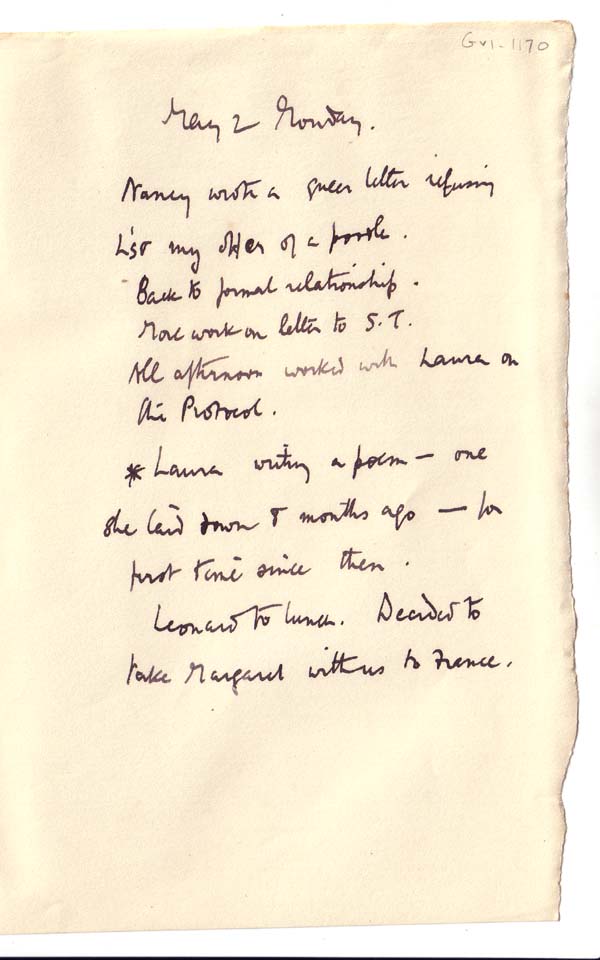 GVI-1170
May 2 Monday.
Nancy wrote a queer letter refusing
my offer of a poodle.
Back to formal relationship.
More work on letter to S.T.
All afternoon worked with Laura on
the Protocol.
* Laura writing a poem — one
she laid down 8 months ago — for
first time since then.
Leonard to lunch. Decided to
take Margaret with us to France.